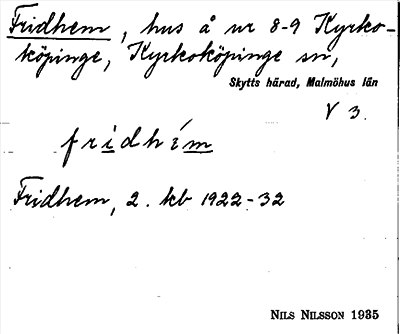 Fridhem, hus å nr 8-9 Kyrko-
köpinge, Kyrkoköpinge sn,
Skytts härad, Malmöhus län
V 3.
fridhém
Fridhem, 2. kb 1922-32
NILS NILSSON 1935